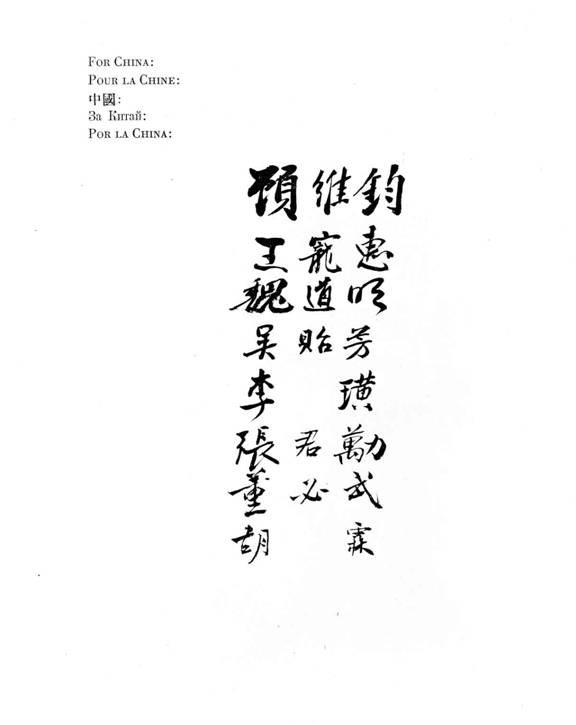 FOR CHINA:
POUR LA CHINE:
中國:
За Китай:
POR LA CHINA:
顧維鈞
王寵惠
魏道明
吳貽芳
李璜
張君勱
董必武
胡霖